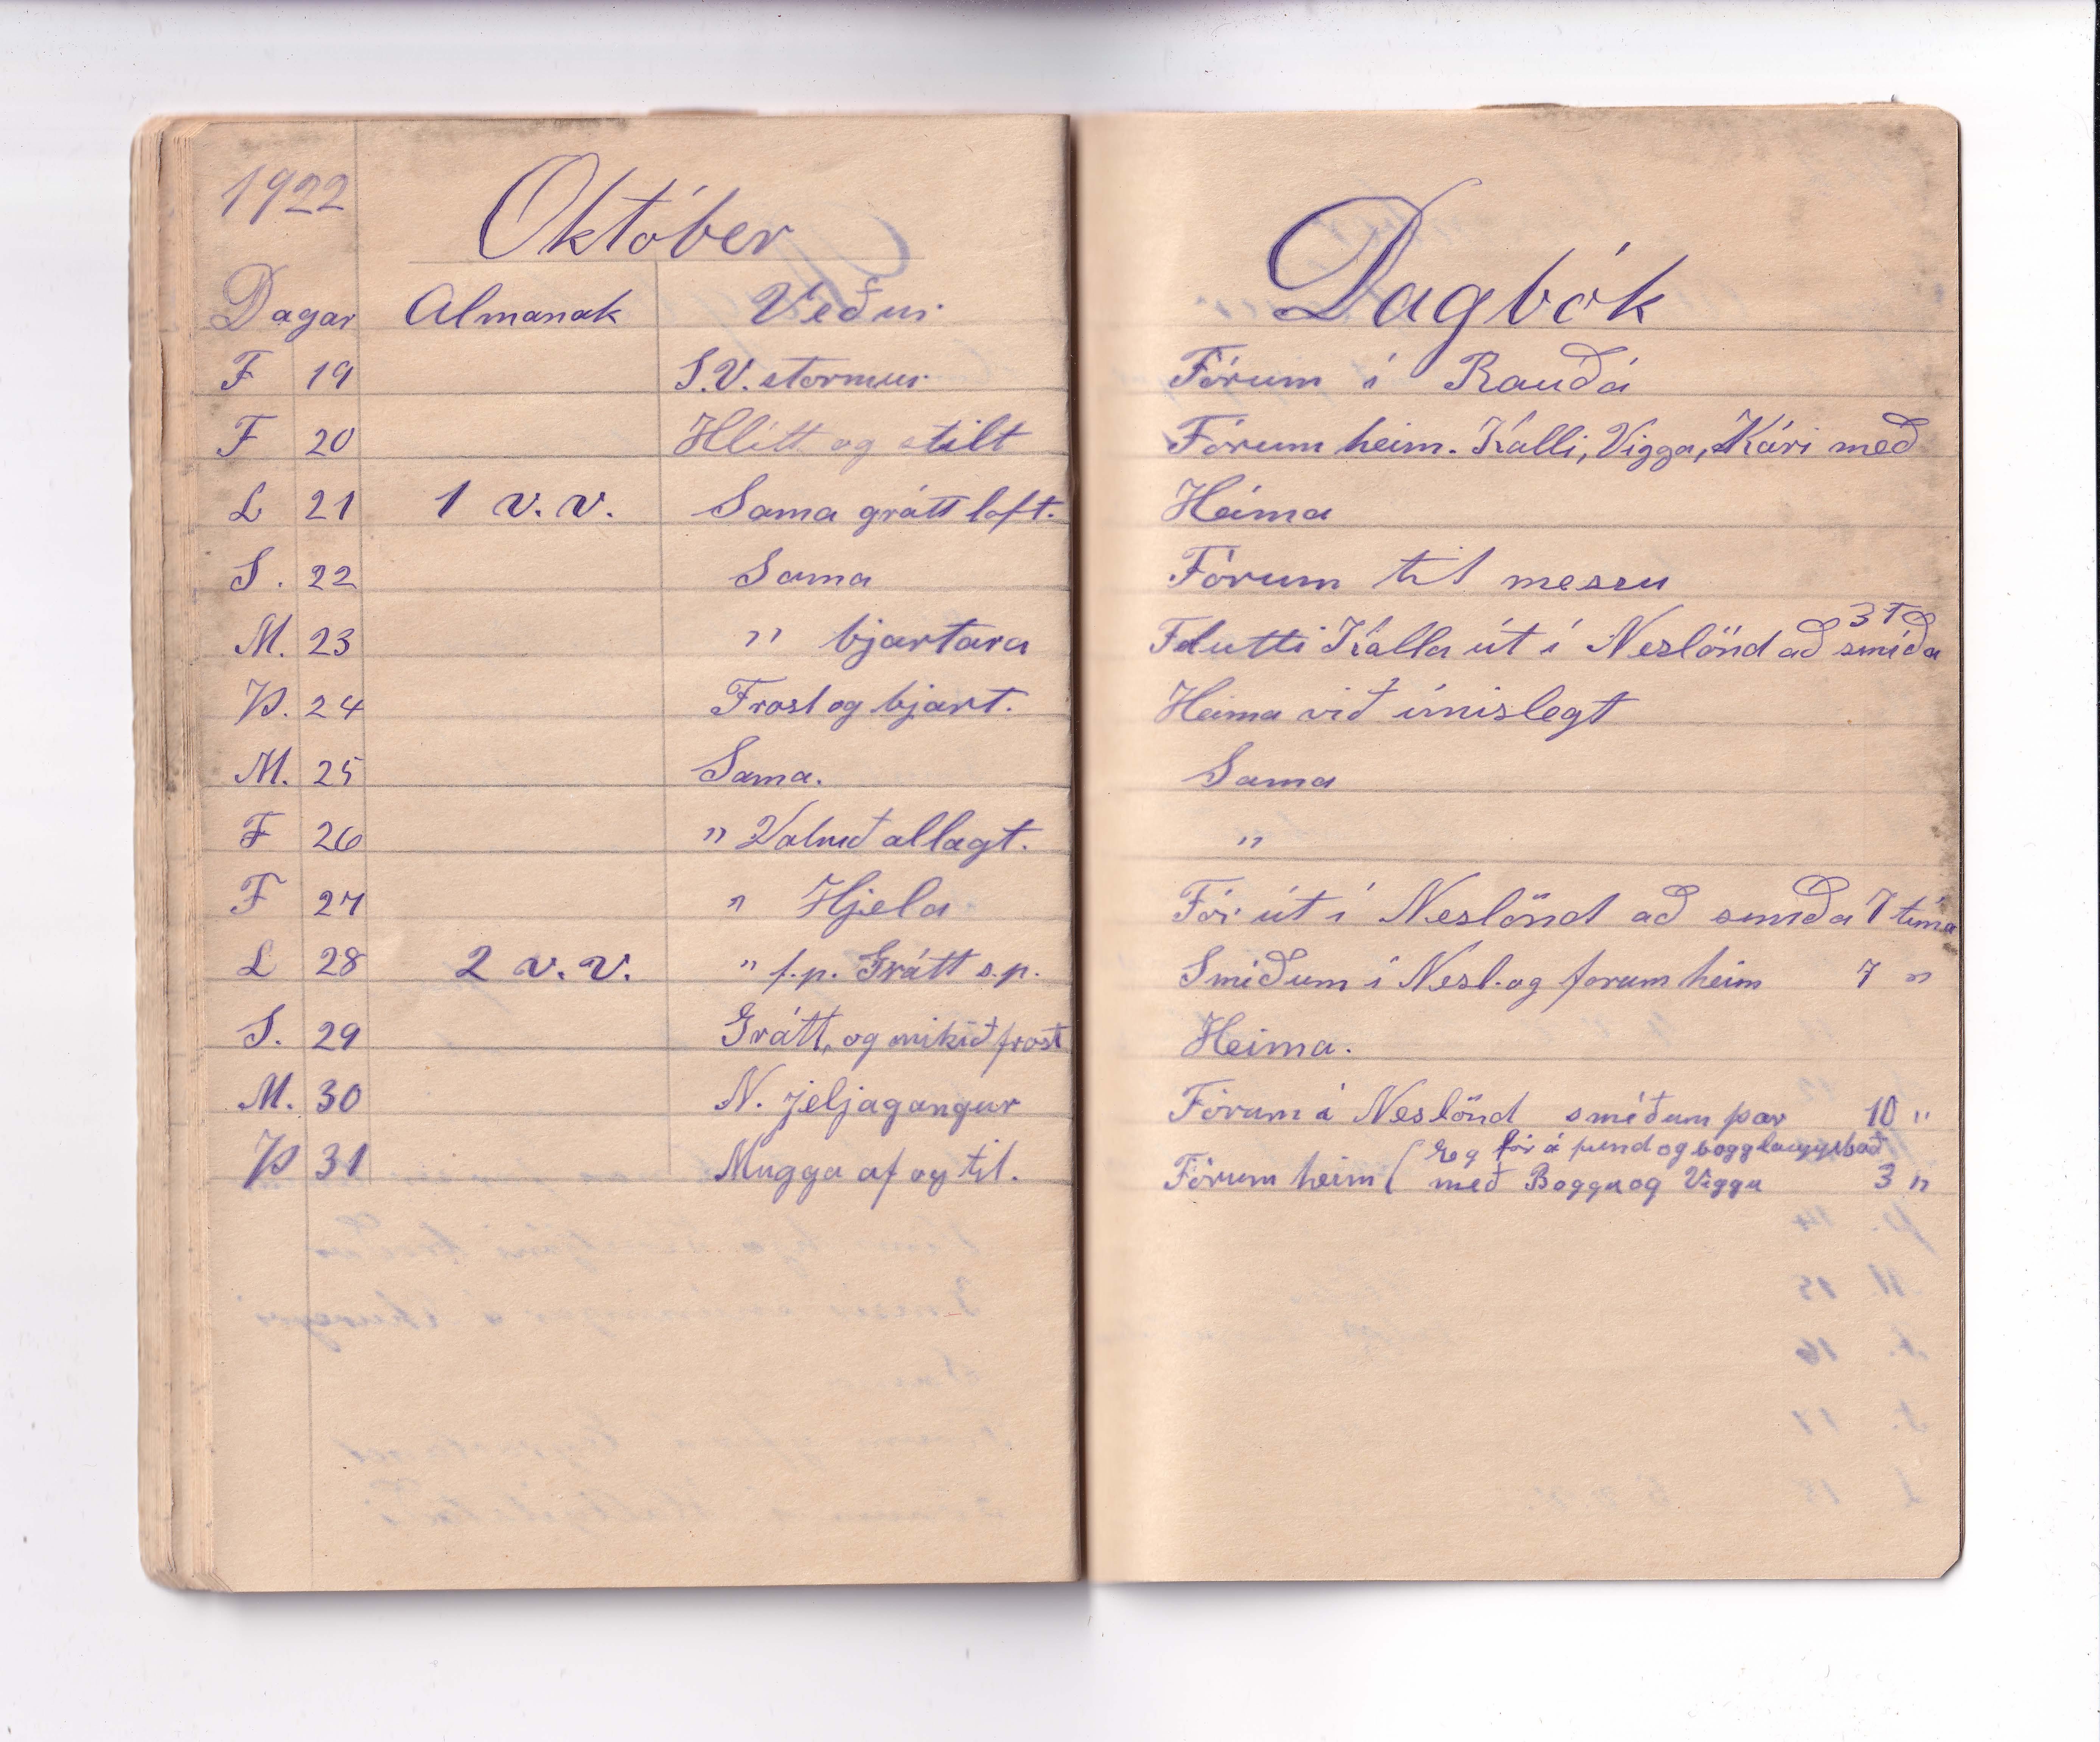 1922
Október
Dagar Almanak Veður
F 19 S.V. stormur
F 20 Hlítt og stilt
L 21 1 v.v. Sama grátt loft.
S. 22 Sama
M. 23 " bjartara
Þ. 24 Frost og bjart.
M. 25 Sama.
F 26 " allagt.
F 27 " Hjela
L 28 2 v.v. " f.p. Grátt s.p.
S. 29 Grátt, og mikið frost
M. 30 N. jeljagangur
Þ 31 Mugga af og til.
Dagbók
Fórum í Rauðá
Fórum heim. Kalli, Vigga, Kári með
Heima
Fórum til messu
3 T
Flutti Kalla út í Neslönd að smíða
Heima við ímislegt
Sama
"
Fór út í Neslönd að smíða 7 tíma
Smíðum í Nesl. og forum heim 7 "
Heima.
Fórum í Neslönd smíðum þar 10 "
Eg fór á fund og
Fórum heim ( með Bogga og Viggu 3 "